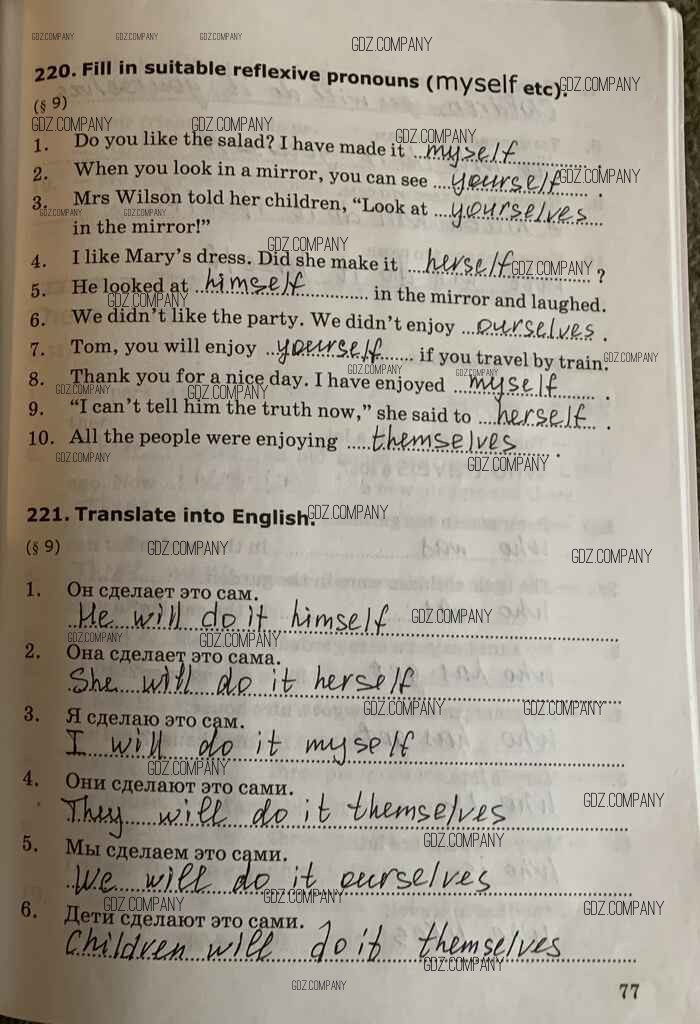 GDZ.COMPANY GDZ.COMPANY GDZ.COMPANY GDZ.COMPANY
220. Fill in suitable reflexive pronouns (myself etc). GDZ.COMPANY
(§ 9)
GDZ.COMPANY GDZ.COMPANY GDZ.COMPANY
1. Do you like the salad? I have made it myself.
2. When you look in a mirror, you can see yourself. GDZ.COMPANY
3. Mrs Wilson told her children, “Look at yourselves
GDZ.COMPANY GDZ.COMPANY
in the mirror!”
GDZ.COMPANY
4. I like Mary’s dress. Did she make it herself? GDZ.COMPANY
5. He looked at himself in the mirror and laughed.
GDZ.COMPANY
6. We didn’t like the party. We didn’t enjoy ourselves.
7. Tom, you will enjoy yourself if you travel by train. GDZ.COMPANY
GDZ.COMPANY GDZ.COMPANY
8. Thank you for a nice day. I have enjoyed myself.
GDZ.COMPANY GDZ.COMPANY
9. “I can’t tell him the truth now,” she said to herself.
10. All the people were enjoying themselves.
GDZ.COMPANY GDZ.COMPANY
221. Translate into English. GDZ.COMPANY
(§ 9) GDZ.COMPANY GDZ.COMPANY
1. Он сделает это сам.
He will do it himself GDZ.COMPANY
GDZ.COMPANY GDZ.COMPANY
2. Она сделает это сама.
She will do it herself
GDZ.COMPANY GDZ.COMPANY
3. Я сделаю это сам.
I will do it myself
GDZ.COMPANY
4. Они сделают это сами.
They will do it themselves GDZ.COMPANY
GDZ.COMPANY
5. Мы сделаем это сами.
We will do it ourselves
GDZ.COMPANY GDZ.COMPANY GDZ.COMPANY
6. Дети сделают это сами.
Children will do it themselves
GDZ.COMPANY
GDZ.COMPANY
77